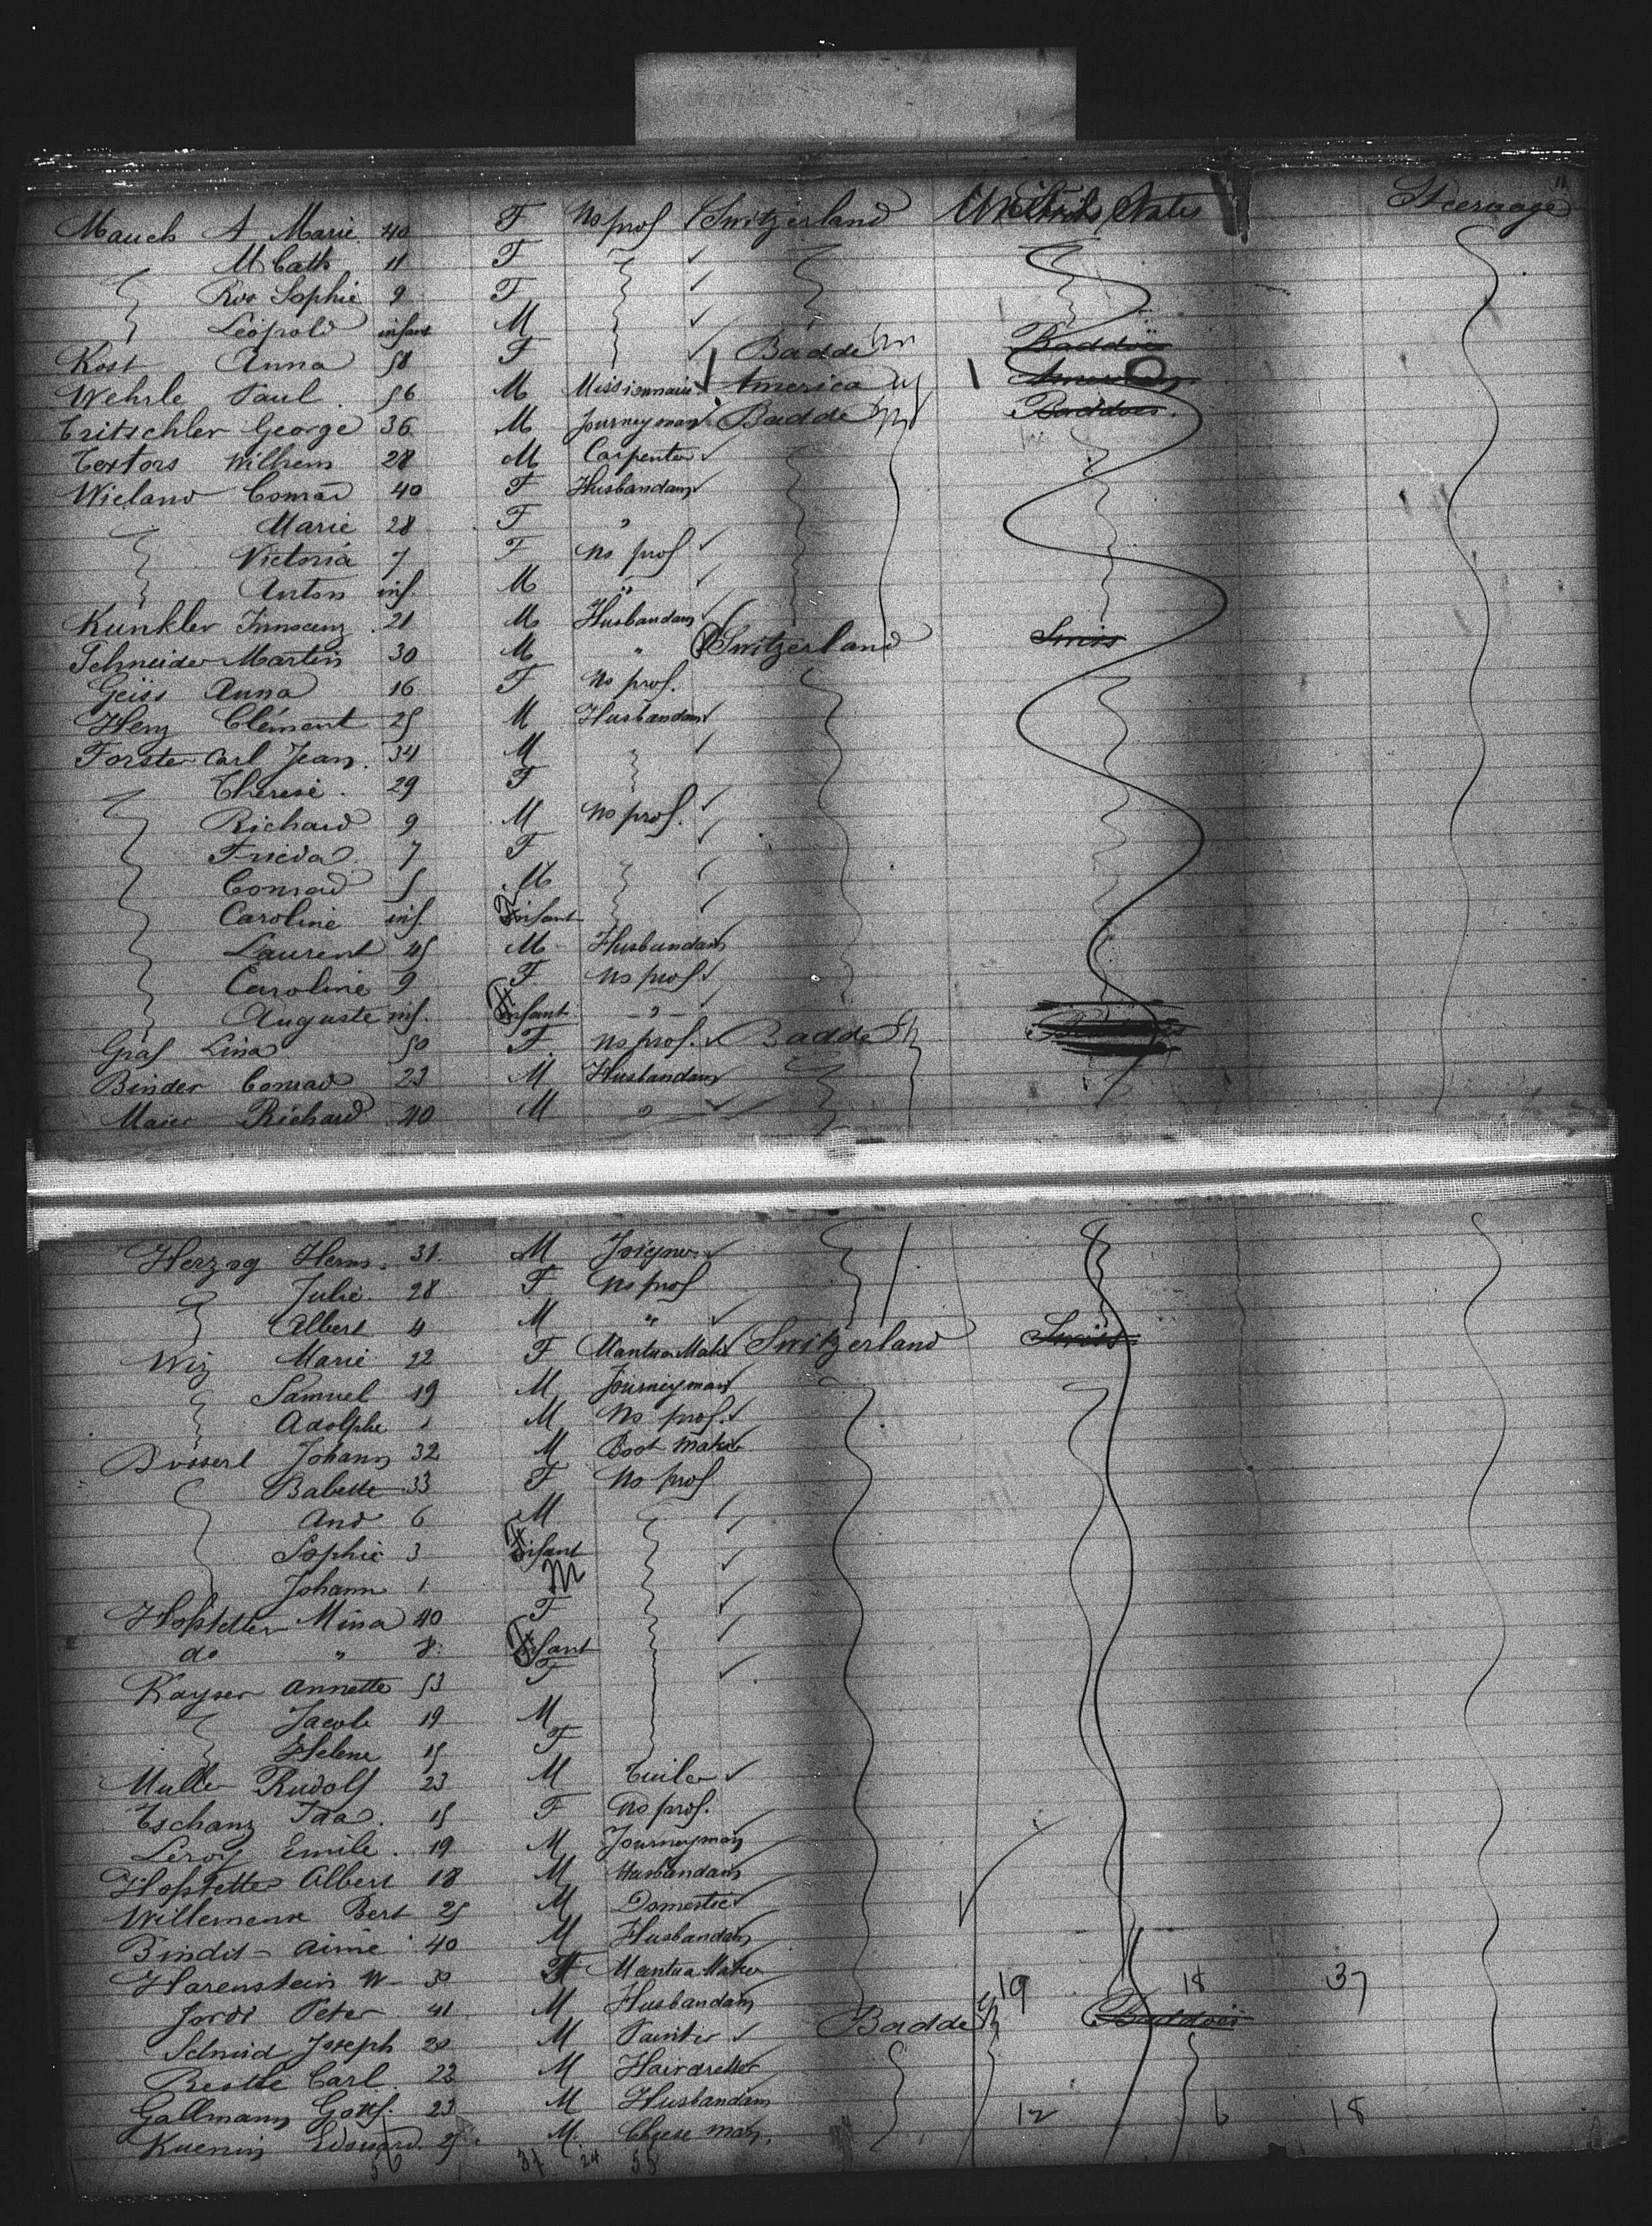 Mauch A Marie 40 F No prof Switzerland United States Steerage
M Cath 11 F
Ros Sophie 9 F
Léopold infant M
Kost Anna 58 F Badde Baddois
Wehrle Paul 56 M Missionnaire America
Tritschler George 36 M Journeyman Badde Baddois
Textors Wilhem 28 M Carpenter
Wieland Conrad 40 F Husbandam
Marie 28 F "
Victoria 7 F No prof
Anton inf. M "
Kunkler Innocenz 21 M Husbandam
Schneider Martin 30 M " Switzerland Swiss
Geiss Anna 16 F No prof.
Herz Clément 25 M Husbandam
Forster Carl Jean 34 M
Therese 29 F
Richard 9 M No prof.
Frieda 7 F
Conrad 5 M
Caroline inf. F infant
Laurent 45 M Husbandam
Caroline 9 F No prof
Auguste inf. F infant "
Graf Lina 50 F No prof. Badde
Binder Conrad 23 M Husbandam
Maier Richard 40 M "
Herzog Herm. 31 M
Julie 28 F No prof
Albert 4 M "
Wiz Marie 22 F Mantua Maker Switzerland Swiss
Samuel 19 M Journeyman
Adolphe 1 M No prof.
Johann 32 M Boot maker
Babette 33 F No prof
And 6 M
Sophie 3 F infant
Johann 1 M
Hofstetter Mina 40 F
do " 8 F infant
Kayser Annette 53 F
Jacob 19 M
Helene 15 F
Muller Rudolf 23 M Tuiler
Tschanz Ida 15 F No prof.
Leroy Emile 19 M Journeyman
Hofstetter Albert 18 M Husbandam
Bert 25 M Domestic
Bindit Aimé 40 M Husbandam
Harenstein W 30 Mantua Maker 19 18 37
Jordi Peter 41 M Husbandam
Schmid Joseph 20 M Painter Badde Baddois
Carl 22 M Hairdresser
Gallmann Gottf. 23 M Husbandam 12 6 18
Kuenin Edouard 25 M Cheese man
56 31 24 55